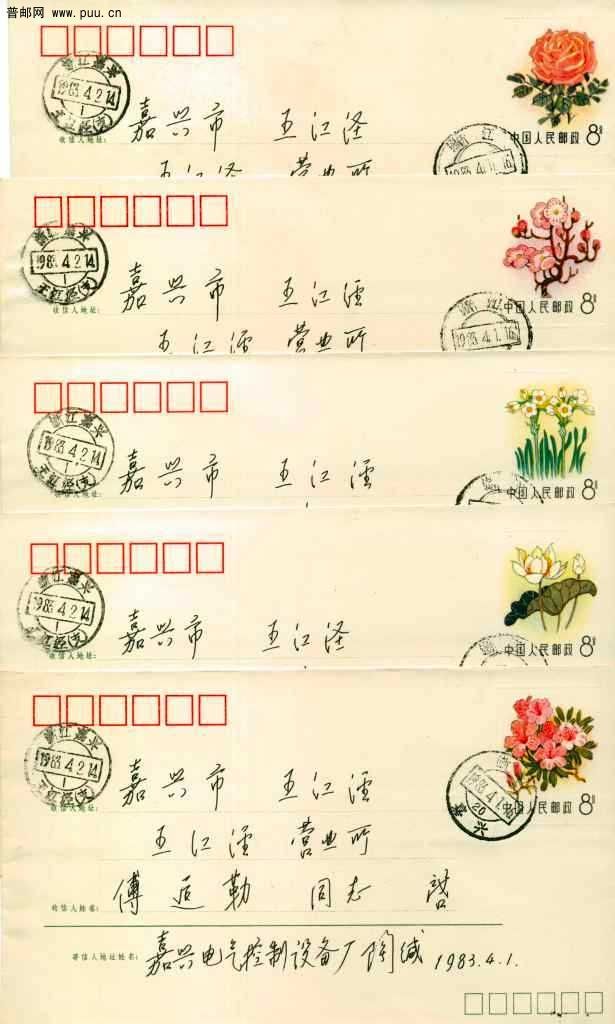 普邮网 www.puu.cn
浙江嘉兴
1983.4.2.14
1
王江泾(支)
收信人地址:
嘉兴市 王江泾
王江泾 营业所
浙江
1983.4.1.16
中国人民邮政 8分
浙江嘉兴
1983.4.2.14
1
王江泾(支)
收信人地址:
嘉兴市 王江泾
王江泾 营业所
浙江
1983.4.1.16
中国人民邮政 8分
浙江嘉兴
1983.4.2.14
1
王江泾(支)
收信人地址:
嘉兴市 王江泾
中国人民邮政 8分
浙江嘉兴
1983.4.2.14
1
王江泾(支)
收信人地址:
嘉兴市 王江泾
中国人民邮政 8分
浙江嘉兴
1983.4.2.14
1
王江泾(支)
收信人地址:
嘉兴市 王江泾
王江泾 营业所
浙
1983.4.1.16
20
嘉兴
中国人民邮政 8分
收信人姓名:
傅 勤 同志 启
寄信人地址姓名:
嘉兴电气控制设备厂陶缄 1983.4.1.